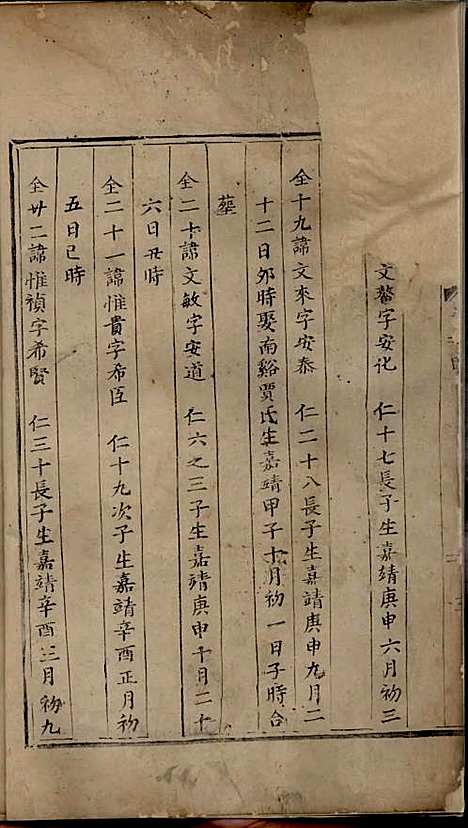 文鰲字安化 仁十七長子生嘉靖庚申六月初三
仝十九諱文來字安泰 仁二十八長子生嘉靖庚申九月二
十二日夘時娶南谿賈氏生嘉靖甲子十月初一日子時合
塟
仝二十諱文敏字安道 仁六之三子生嘉靖庚申十月二十
六日丑時
仝二十一諱惟貴字希臣 仁十九次子生嘉靖辛酉正月初
五日巳時
仝廿二諱惟禎字希賢 仁三十長子生嘉靖辛酉三月初九